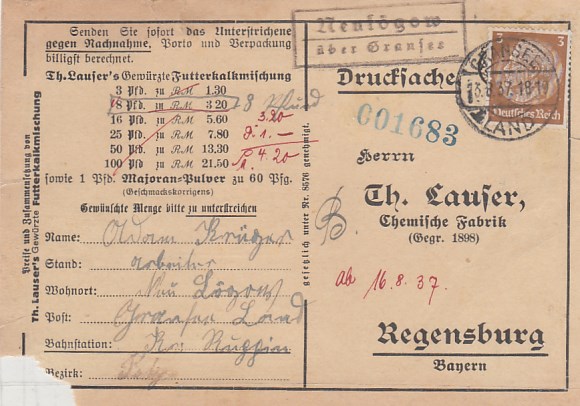 Senden Sie sofort das Unterstrichene
gegen Nachnahme, Porto und Verpackung
billigst berechnet.
Th. Lauser's Gewürzte Futterkalkmischung
3 Pfd. zu RM 1.30
8 Pfd. zu RM 3.20 8 Pfund
16 Pfd. zu RM 5.60 3.20
25 Pfd. zu RM 7.80 1.—
50 Pfd. zu RM 13.30 4.20
100 Pfd. zu RM 21.50
sowie 1 Pfd. Majoran-Pulver zu 60 Pfg.
(Geschmackskorrigens)
Gewünschte Menge bitte zu unterstreichen
Name: Adam Krüger
Stand: Arbeiter
Wohnort: Neu Lögow
Post: Gransee Land
Bahnstation: Ruppin
Bezirk:
Preise und Zusammensetzung von
Th. Lauser's Gewürzte Futterkalkmischung
gesetzlich unter Nr. 8576 genehmigt.
Neulögow
über Gransee
Drucksache
3 3
Deutsches Reich
GRANSEE
.8.37.18-19
LAND
001683
Herrn
Th. Lauser,
Chemische Fabrik
(Gegr. 1898)
B.
ab 16.8.37.
Regensburg
Bayern